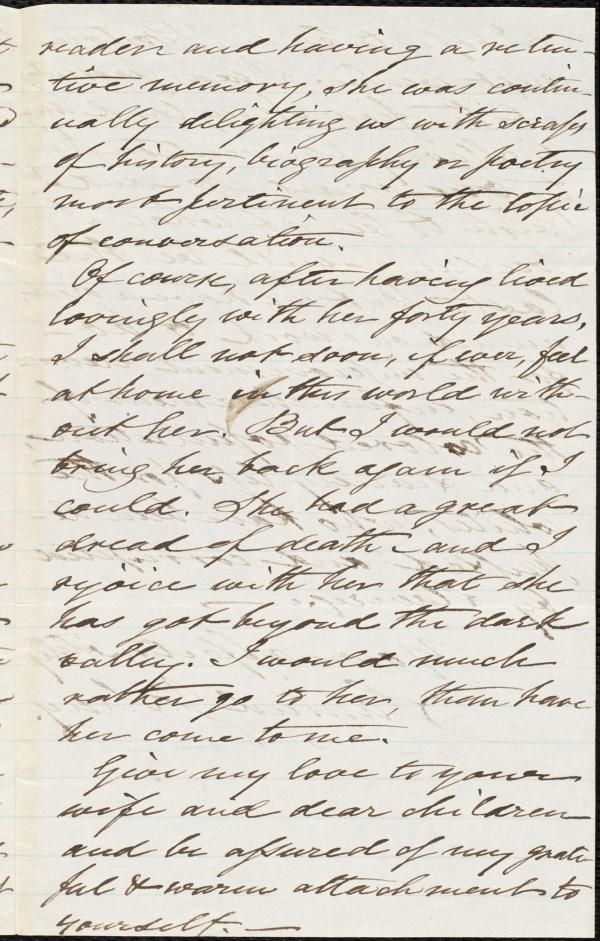 reader and having a reten-
tive memory, she was contin-
ually delighting us with scraps
of history, biography or poetry
most pertinent to the topic
of conversation.
Of course, after having lived
lovingly with her forty years,
I shall not soon, if ever, feel
at home in this world with-
out her. But I would not
bring her back again if I
could. She had a great
dread of death - and I
rejoice with her that she
has got beyond the dark
valley. I would much
rather go to her, than have
her come to me.
Give my love to your
wife and dear children
and be assured of my grate
ful & warm attachment to
yourself. —